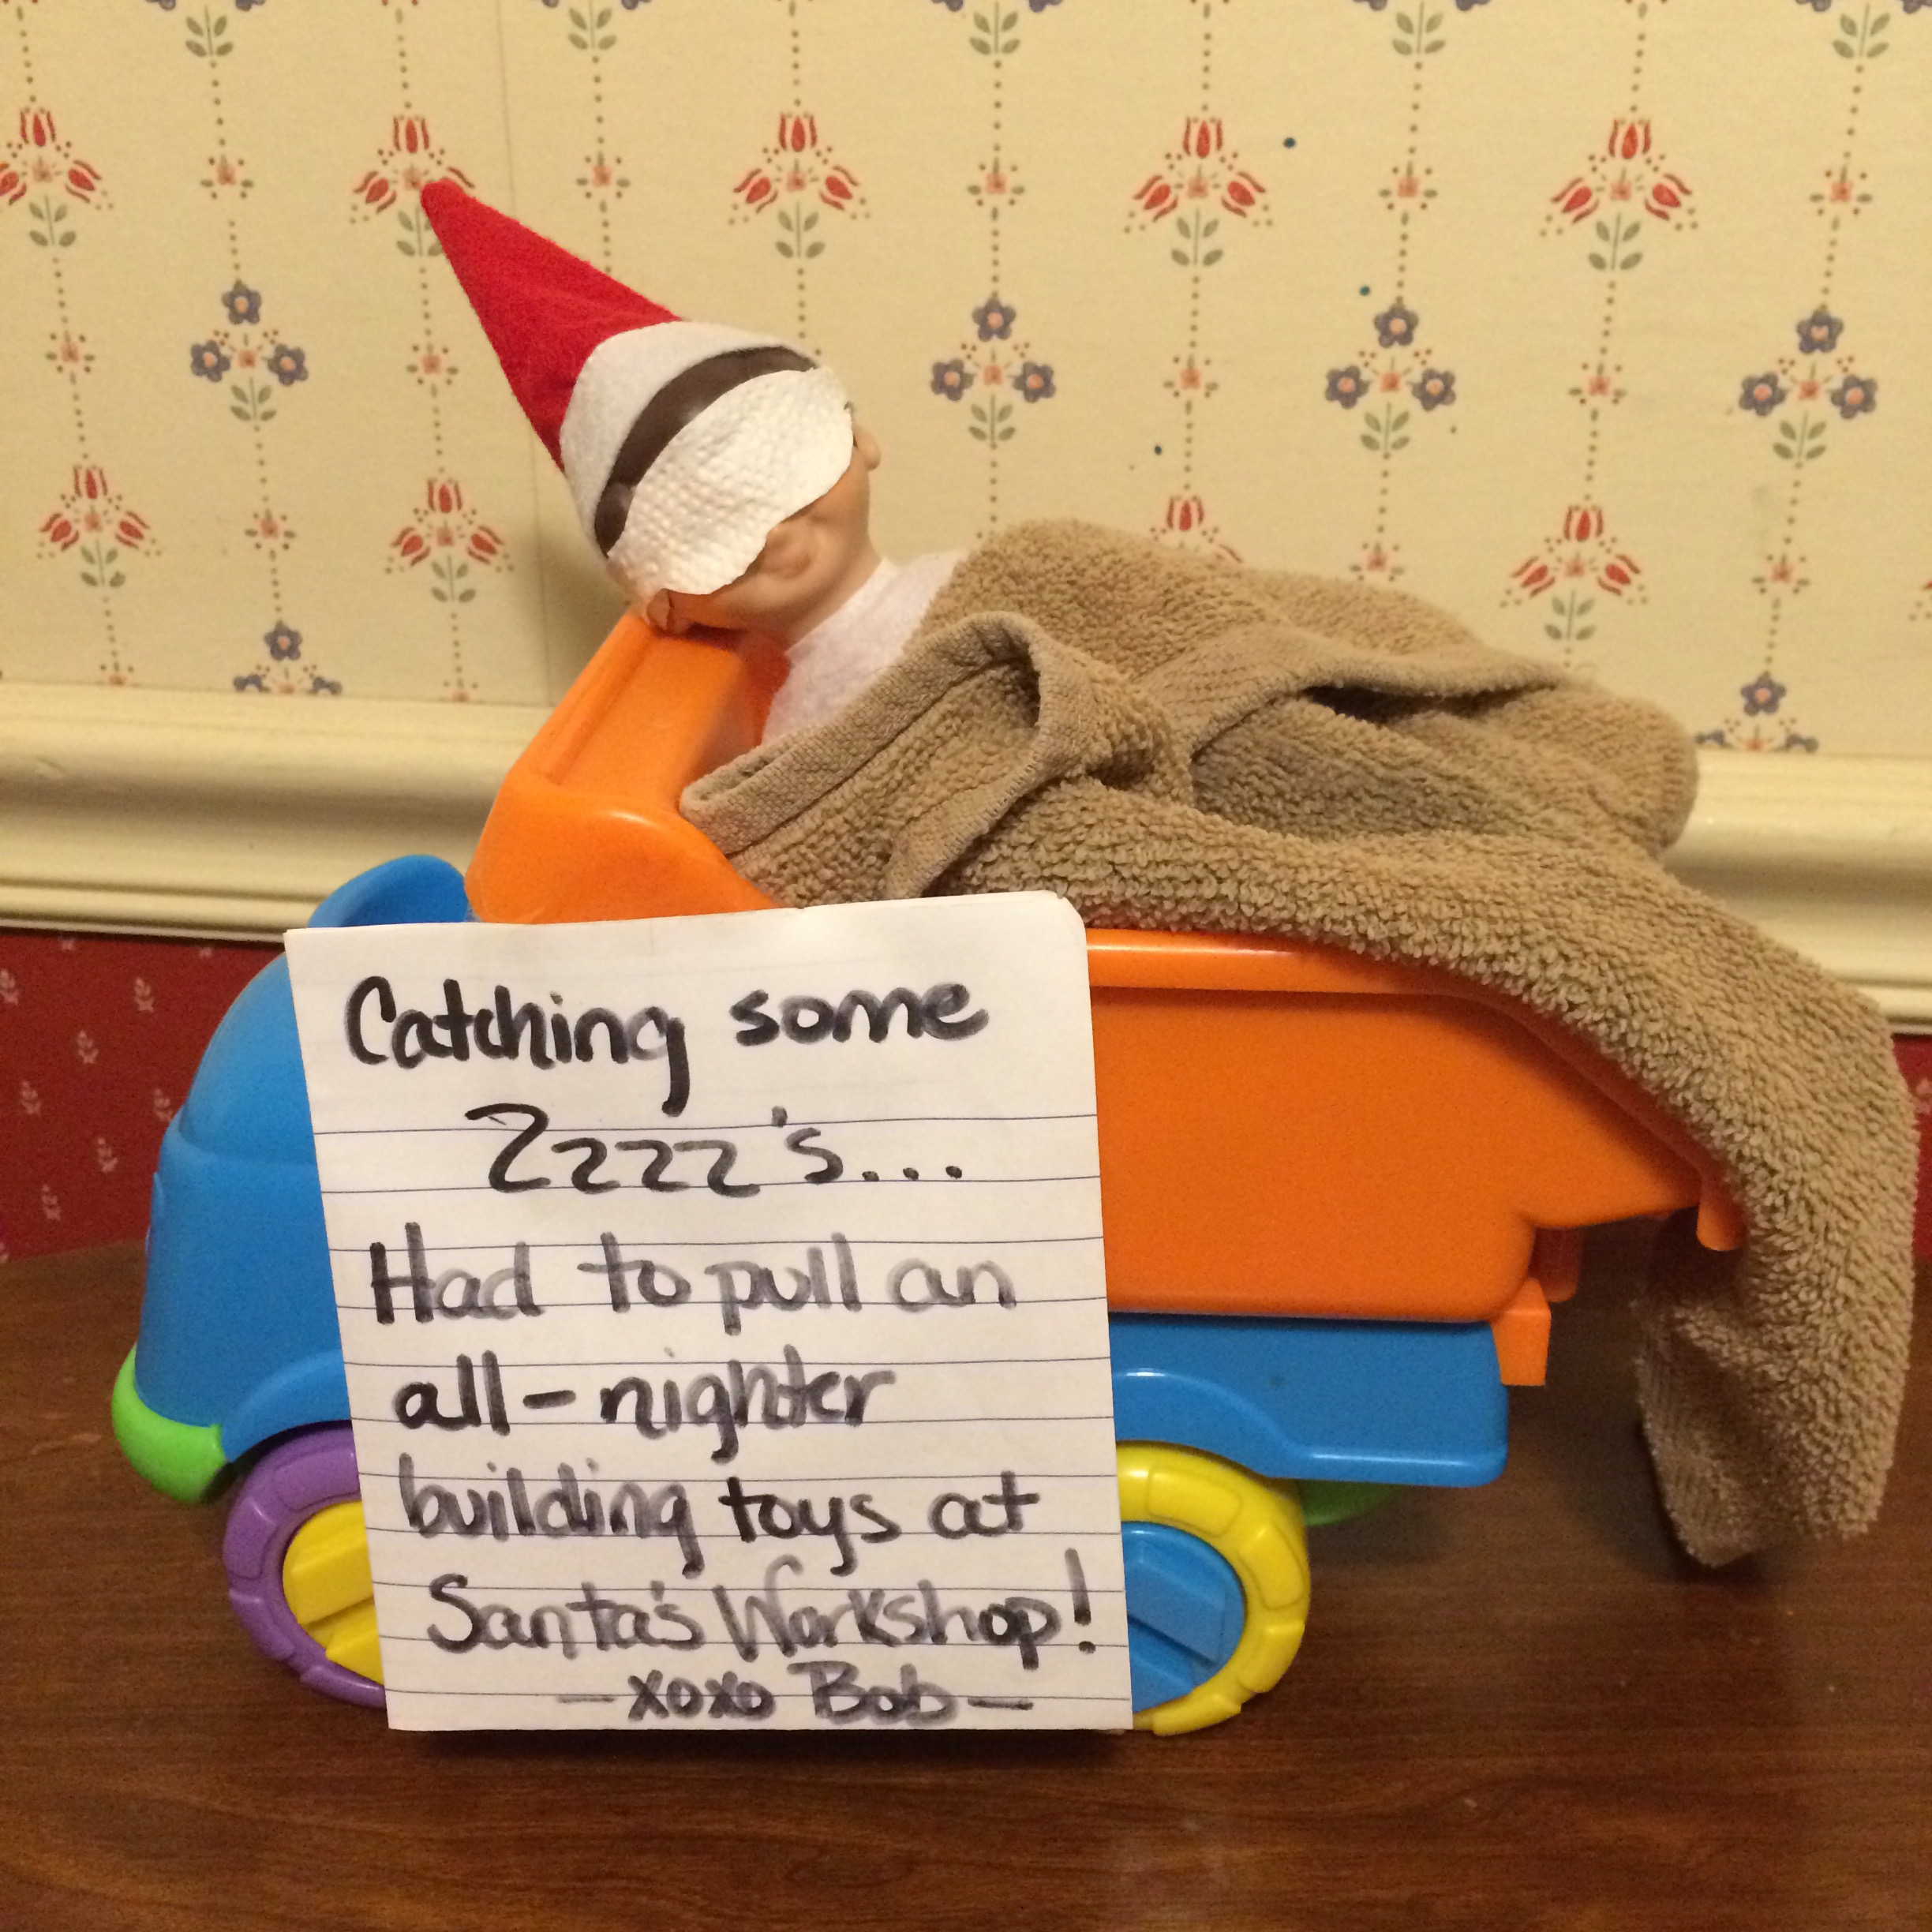 Catching some
Zzzz's...
Had to pull an
all-nighter
building toys at
Santa's Workshop!
-xoxo Bob-